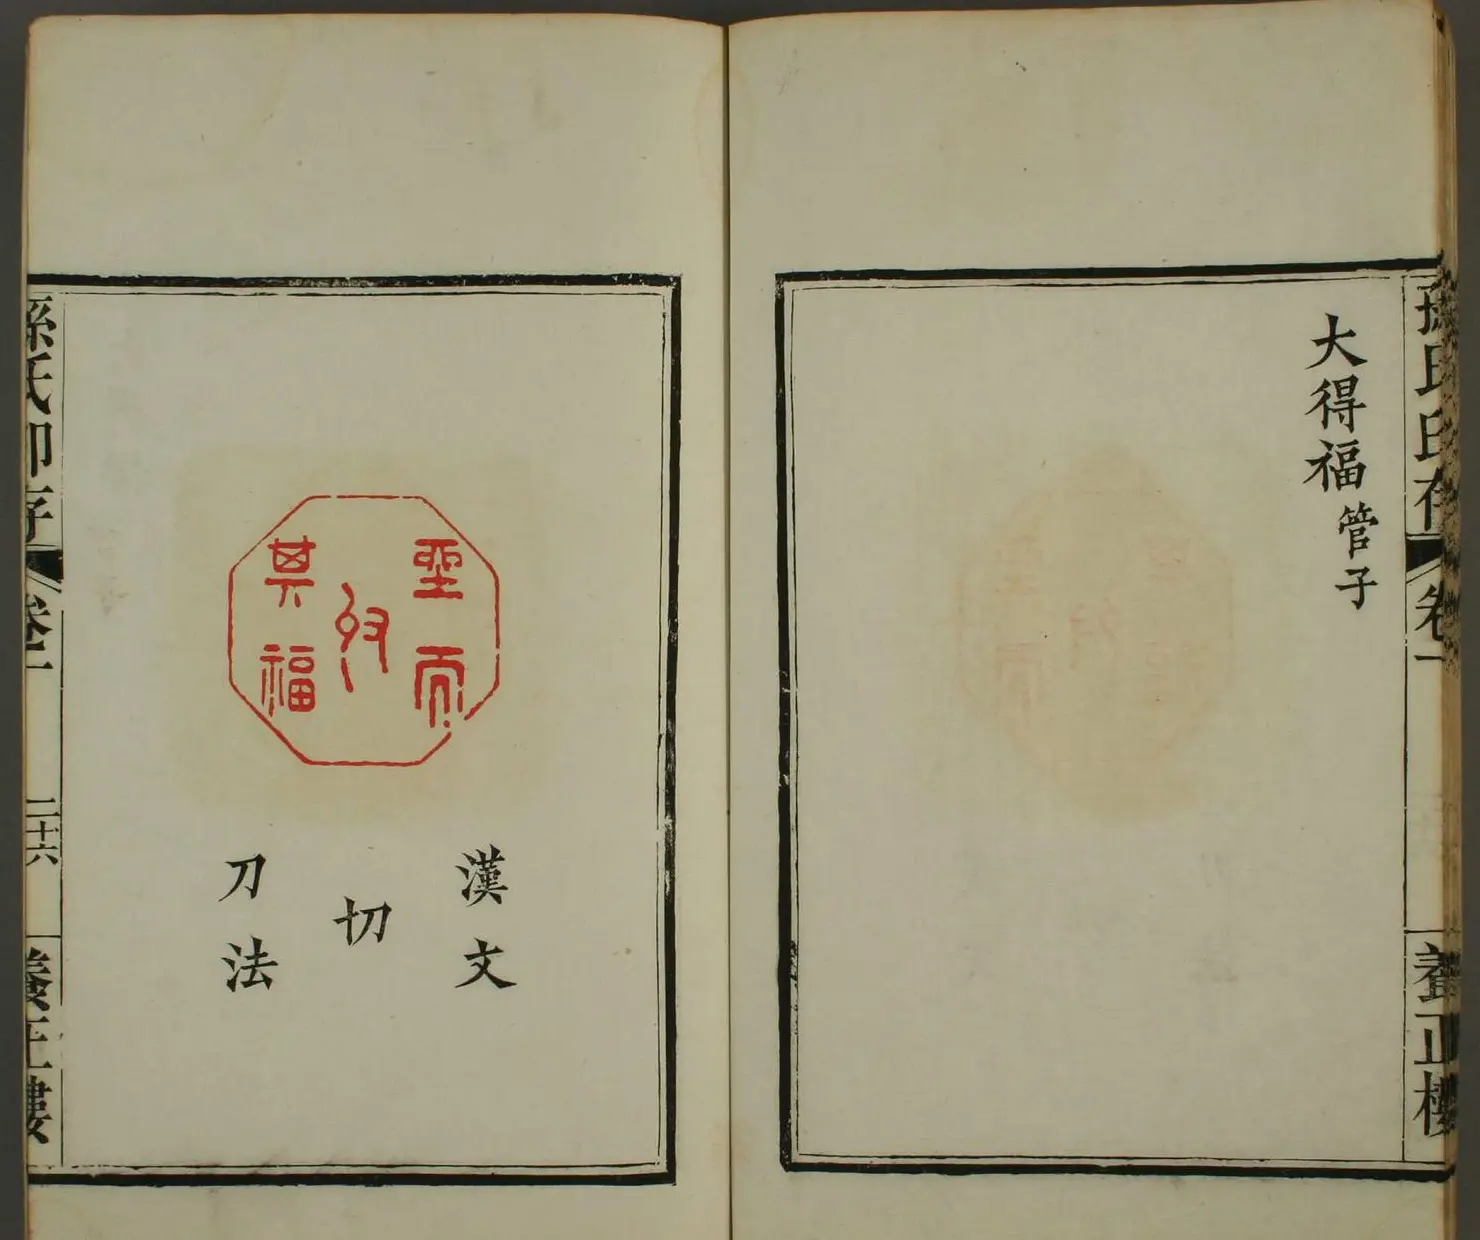 孫氏印存
卷一
養正樓
大得福管子
聖而
其福
漢文
切
刀法
孫氏印存
卷一
二十六
養正樓